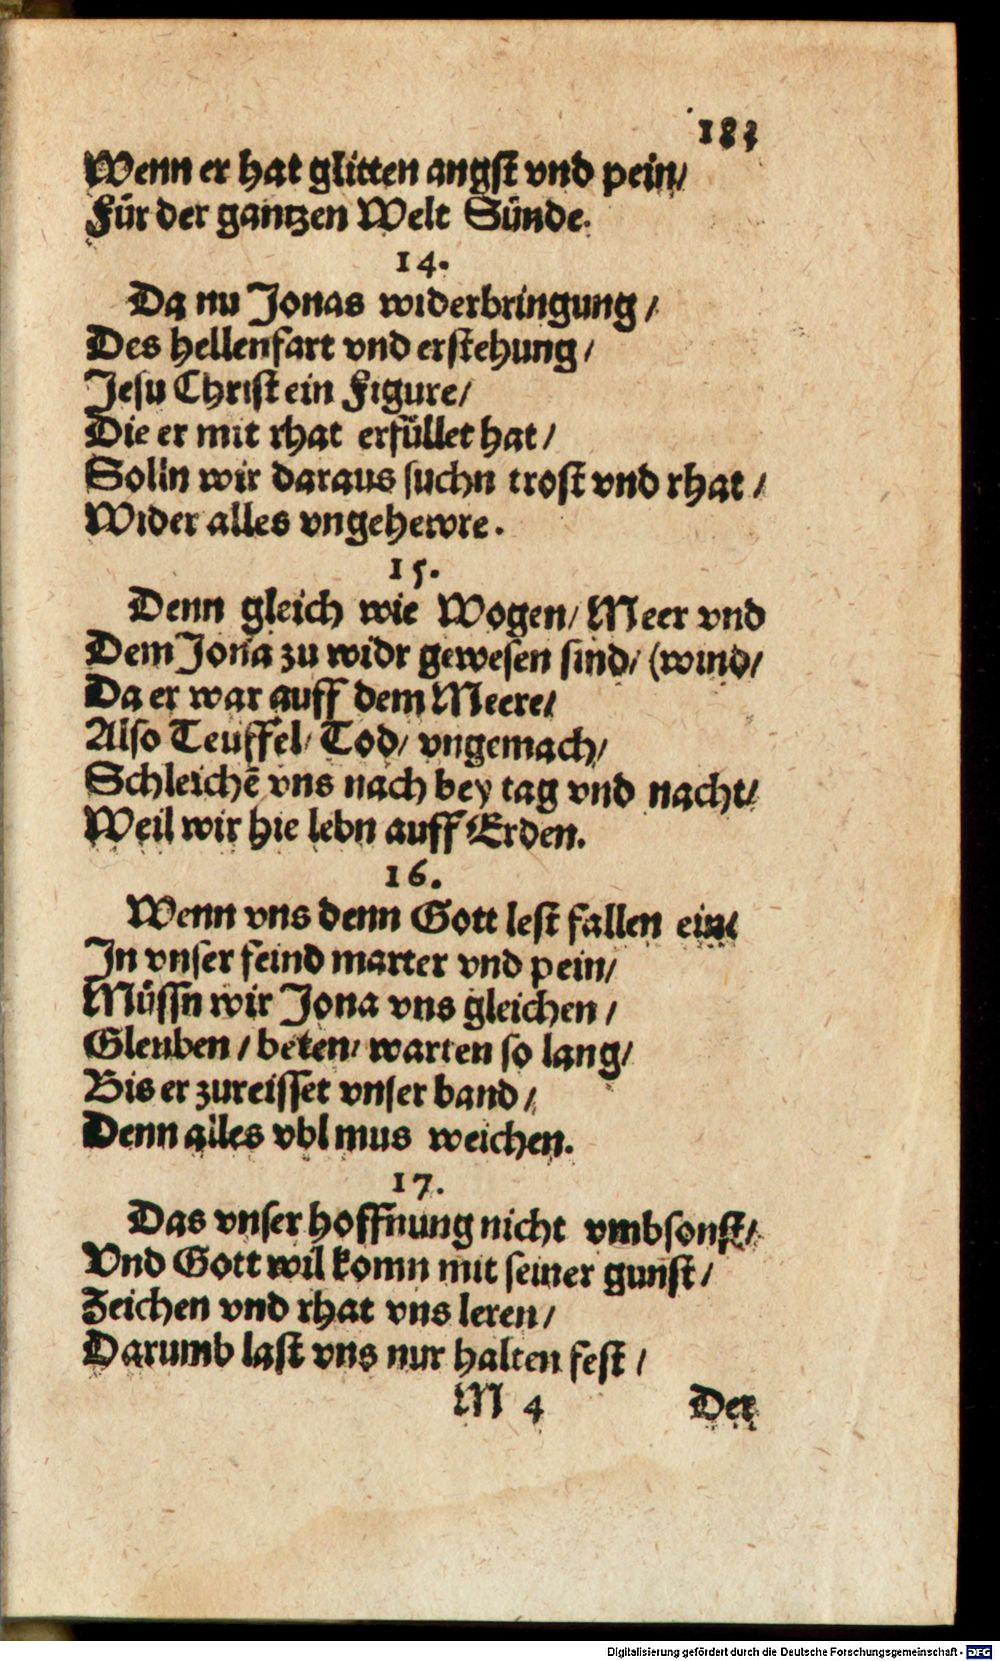 183
Wenn er hat glitten angst vnd pein/
Für der gantzen Welt Sünde.
14.
Da nu Jonas widerbringung /
Des hellenfart vnd erstehung /
Jesu Christ ein Figure /
Die er mit rhat erfüllet hat /
Solln wir daraus suchn trost vnd rhat /
Wider alles vngehewre.
15.
Denn gleich wie Wogen / Meer vnd
Dem Jona zu widr gewesen sind / (wind /
Da er war auff dem Meere /
Also Teuffel / Tod / vngemach /
Schleichē vns nach bey tag vnd nacht /
Weil wir hie lebn auff Erden.
16.
Wenn vns denn Gott lest fallen ein /
In vnser feind marter vnd pein /
Müssn wir Jona vns gleichen /
Gleuben / beten / warten so lang /
Bis er zureisset vnser band /
Denn alles vbl mus weichen.
17.
Das vnser hoffnung nicht vmbsonst /
Vnd Gott wil komn mit seiner gunst /
Zeichen vnd rhat vns leren /
Darumb last vns nur halten fest /
M 4 Der
Digitalisierung gefördert durch die Deutsche Forschungsgemeinschaft - DFG